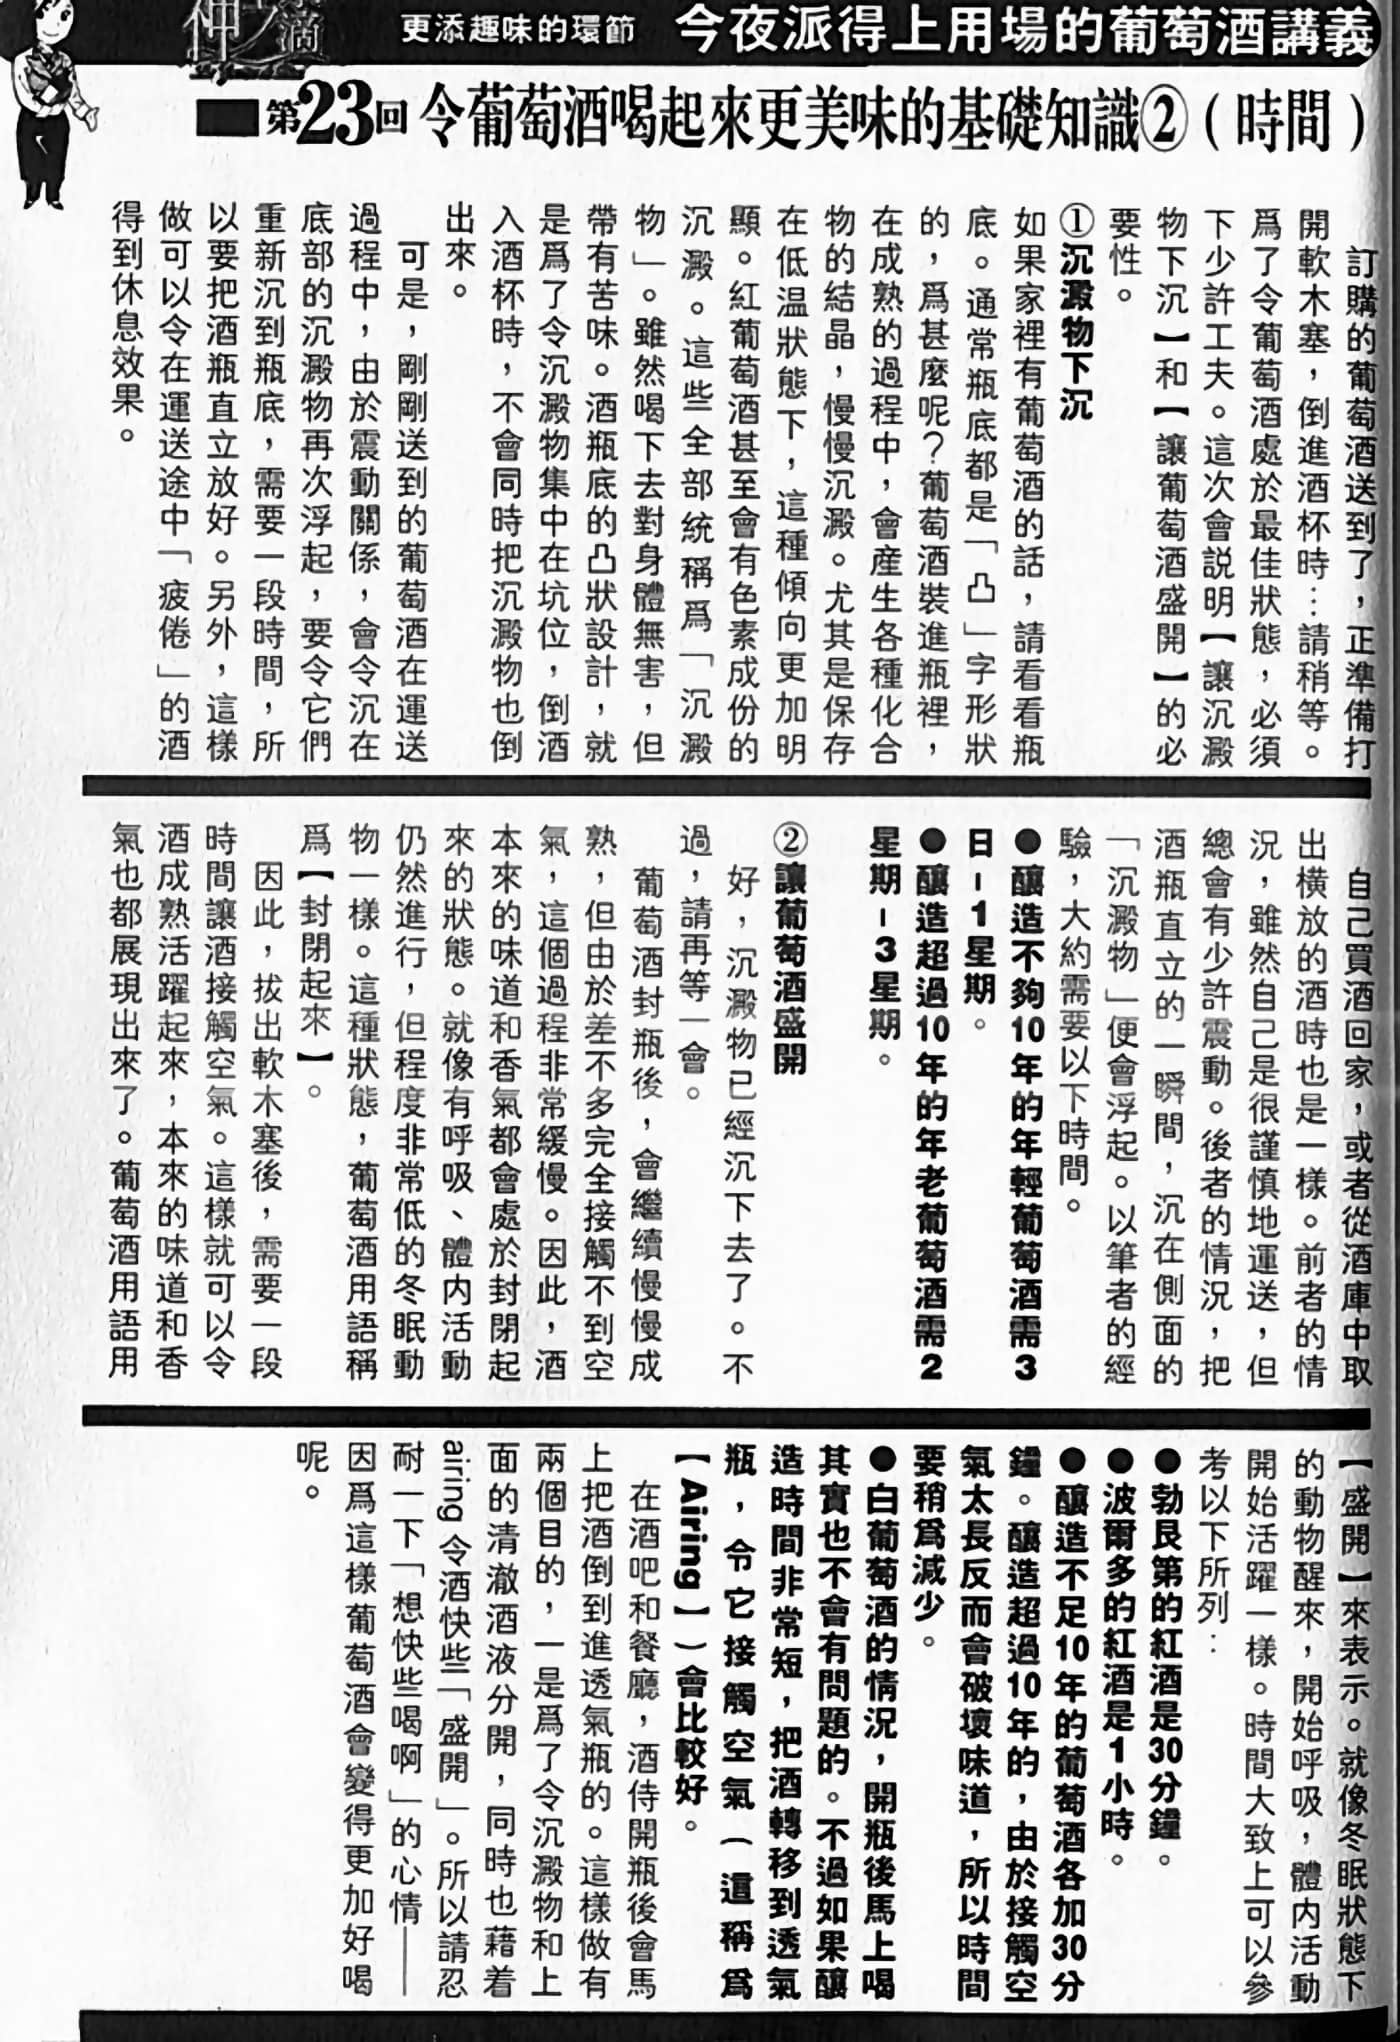 神之水滴
更添趣味的環節
今夜派得上用場的葡萄酒講義
第23回 令葡萄酒喝起來更美味的基礎知識②(時間)
訂購的葡萄酒送到了，正準備打
開軟木塞，倒進酒杯時…請稍等。
爲了令葡萄酒處於最佳狀態，必須
下少許工夫。這次會説明【讓沉澱
物下沉】和【讓葡萄酒盛開】的必
要性。
①沉澱物下沉
如果家裡有葡萄酒的話，請看看瓶
底。通常瓶底都是「凸」字形狀
的，爲甚麼呢？葡萄酒裝進瓶裡，
在成熟的過程中，會産生各種化合
物的結晶，慢慢沉澱。尤其是保存
在低温狀態下，這種傾向更加明
顯。紅葡萄酒甚至會有色素成份的
沉澱。這些全部統稱爲「沉澱
物」。雖然喝下去對身體無害，但
帶有苦味。酒瓶底的凸狀設計，就
是爲了令沉澱物集中在坑位，倒酒
入酒杯時，不會同時把沉澱物也倒
出來。
可是，剛剛送到的葡萄酒在運送
過程中，由於震動關係，會令沉在
底部的沉澱物再次浮起，要令它們
重新沉到瓶底，需要一段時間，所
以要把酒瓶直立放好。另外，這樣
做可以令在運送途中「疲倦」的酒
得到休息效果。
自己買酒回家，或者從酒庫中取
出橫放的酒時也是一樣。前者的情
況，雖然自己是很謹慎地運送，但
總會有少許震動。後者的情況，把
酒瓶直立的一瞬間，沉在側面的
「沉澱物」便會浮起。以筆者的經
驗，大約需要以下時間。
●釀造不夠10年的年輕葡萄酒需3
日－1星期。
●釀造超過10年的年老葡萄酒需2
星期－3星期。
②讓葡萄酒盛開
好，沉澱物已經沉下去了。不
過，請再等一會。
葡萄酒封瓶後，會繼續慢慢成
熟，但由於差不多完全接觸不到空
氣，這個過程非常緩慢。因此，酒
本來的味道和香氣都會處於封閉起
來的狀態。就像有呼吸、體内活動
仍然進行，但程度非常低的冬眠動
物一樣。這種狀態，葡萄酒用語稱
爲【封閉起來】。
因此，拔出軟木塞後，需要一段
時間讓酒接觸空氣。這樣就可以令
酒成熟活躍起來，本來的味道和香
氣也都展現出來了。葡萄酒用語用
【盛開】來表示。就像冬眠狀態下
的動物醒來，開始呼吸，體内活動
開始活躍一樣。時間大致上可以參
考以下所列：
●勃艮第的紅酒是30分鐘。
●波爾多的紅酒是1小時。
●釀造不足10年的葡萄酒各加30分
鐘。釀造超過10年的，由於接觸空
氣太長反而會破壞味道，所以時間
要稍爲減少。
●白葡萄酒的情況，開瓶後馬上喝
其實也不會有問題的。不過如果釀
造時間非常短，把酒轉移到透氣
瓶，令它接觸空氣（這稱爲
【Airing】）會比較好。
在酒吧和餐廳，酒侍開瓶後會馬
上把酒倒到進透氣瓶的。這樣做有
兩個目的，一是爲了令沉澱物和上
面的清澈酒液分開，同時也藉着
airing令酒快些「盛開」。所以請忍
耐一下「想快些喝啊」的心情——
因爲這樣葡萄酒會變得更加好喝
呢。